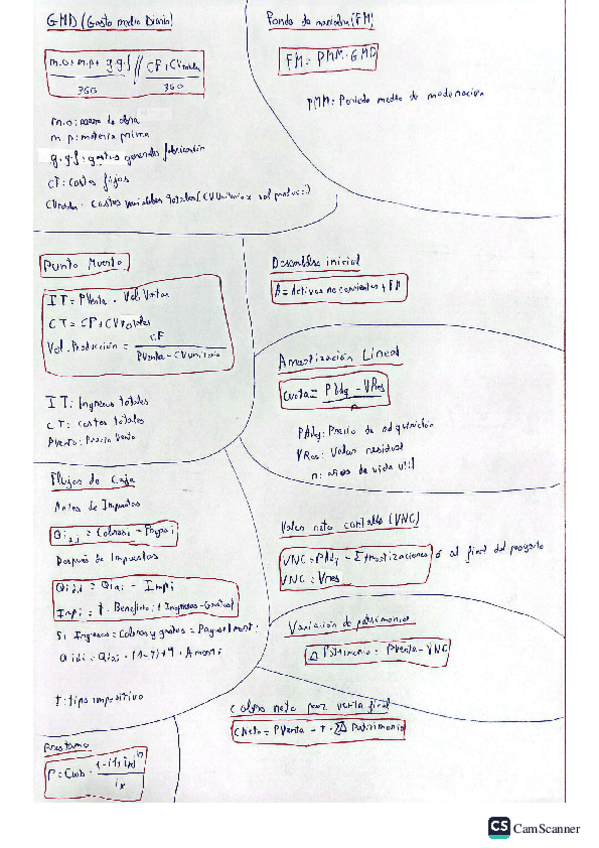 GMD (Gasto medio Diario)
m.o + m.p + g.g.f // CF + CVtotales
360 360
m.o: mano de obra
m p: materia prima
g.g.f: gastos generales fabricación
CF: Costes fijos
CVtotales: Costes variables totales (CVUnitario x vol produc.)
Fondo de maniobra (FM)
FM = PMM · GMD
PMM: Periodo medio de maduración
Punto Muerto
IT = PVenta · Vol. Ventas
CT = CF + CVtotales
Vol. Producción = CF
PVenta - CVunitario
IT: Ingresos totales
CT: costes totales
PVenta: Precio Venta
Desembolso inicial
A = Activos no corrientes + FM
Amortización Lineal
Cuota = PAdq - VRes
n
PAdq: Precio de adquisición
VRes: Valor residual
n: años de vida útil
Flujos de Caja
Antes de Impuestos
= Cobros i - Pagos i
Después de Impuestos
Imp i = t · Beneficio
Si Ingresos = Cobros y gastos = Pagos + Amort.
t: tipo impositivo
Valor neto contable (VNC)
VNC = PAdq - Σ Amortizaciones ó al final del proyecto
VNC = Vres
Variación de patrimonio
Δ Patrimonio = PVenta - VNC
Cobro neto por venta final
CNeto = PVenta - t · Δ Patrimonio
Prestamo
CS CamScanner